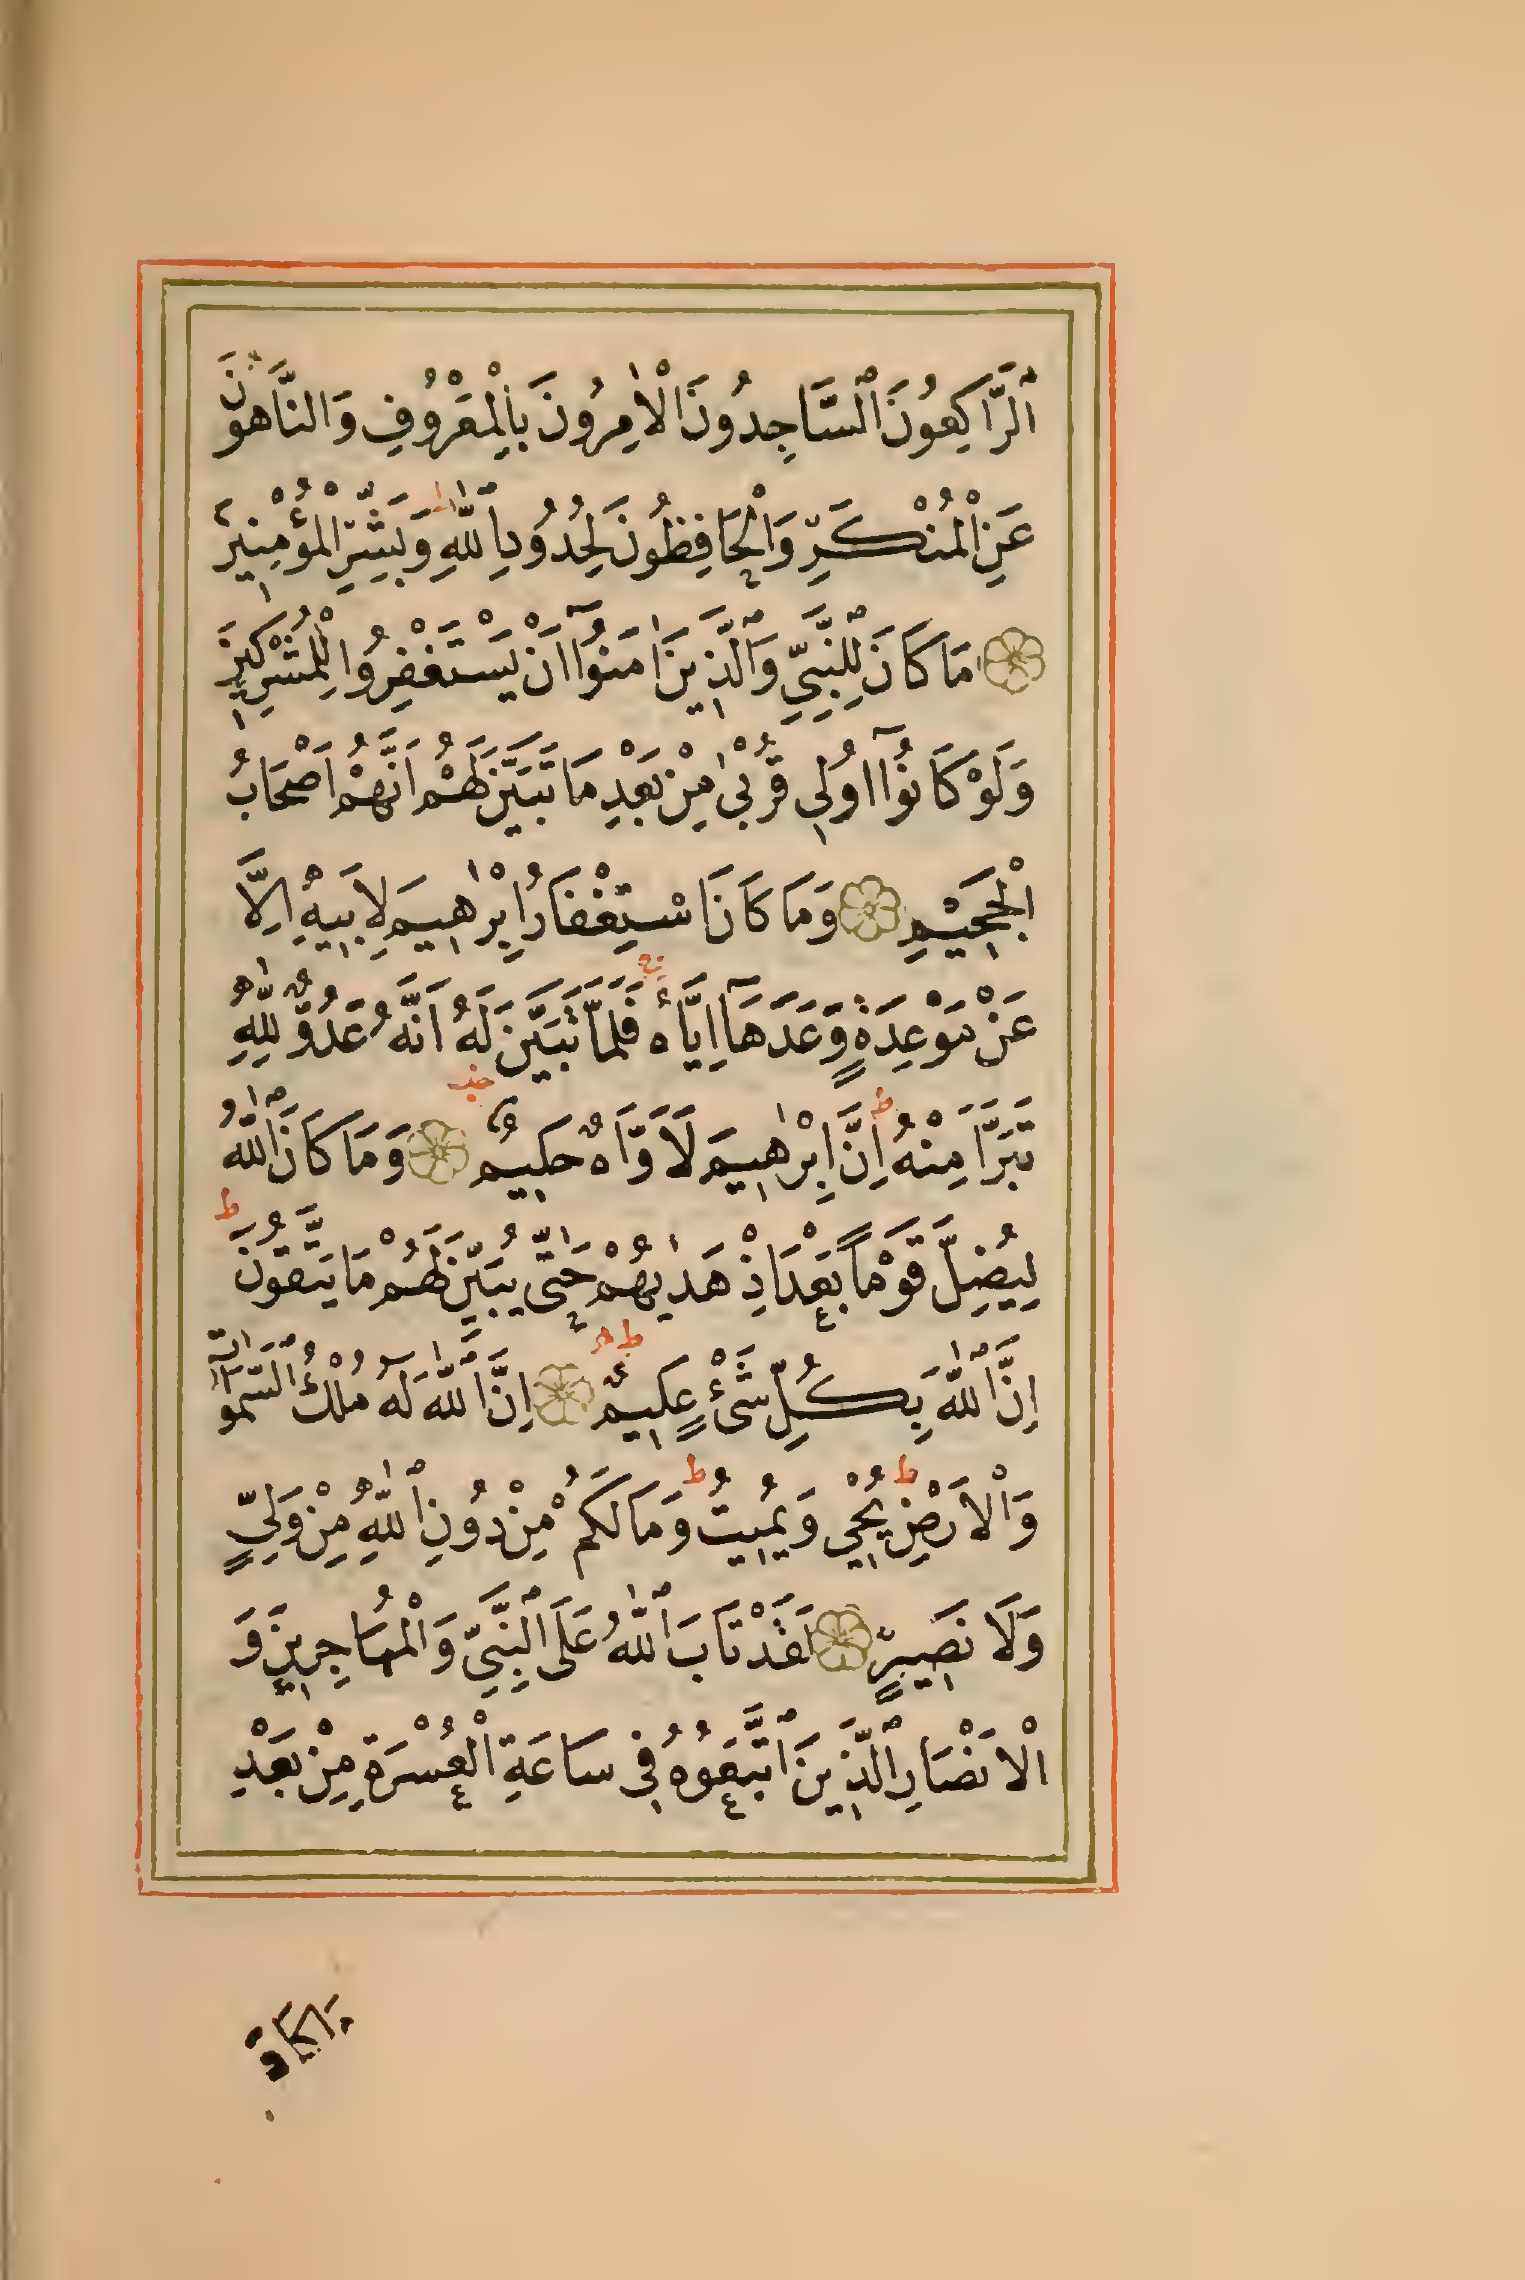 اَلرَّاكِعُونَ ٱلسَّاجِدُونَ الْاٰمِرُونَ بِالْمَعْرُوفِ وَالنَّاهُونَ
عَنِ الْمُنْكَرِ وَالْحَافِظُونَ لِحُدُودِ ٱللّٰهِ ط وَبَشِّرِ الْمُؤْمِنِينَ
مَا كَانَ لِلنَّبِيِّ وَٱلَّذِينَ اٰمَنُوٓا اَنْ يَسْتَغْفِرُوا لِلْمُشْرِكِينَ
وَلَوْ كَانُوٓا اُولِى قُرْبٰى مِنْ بَعْدِ مَا تَبَيَّنَ لَهُمْ اَنَّهُمْ اَصْحَابُ
الْجَحِيمِ وَمَا كَانَ اسْتِغْفَارُ اِبْرٰهِيمَ لِاَبِيهِ اِلَّا
عَنْ مَوْعِدَةٍ وَّعَدَهَآ اِيَّاهُ ج فَلَمَّا تَبَيَّنَ لَهُ اَنَّهُ عَدُوٌّ لِلّٰهِ
تَبَرَّاَ مِنْهُ ط اِنَّ اِبْرٰهِيمَ لَاَوَّاهٌ حَلِيمٌ وَمَا كَانَ ٱللّٰهُ
لِيُضِلَّ قَوْمًا بَعْدَ اِذْ هَدٰيهُمْ حَتّٰى يُبَيِّنَ لَهُمْ مَا يَتَّقُونَ ط
اِنَّ ٱللّٰهَ بِكُلِّ شَىْءٍ عَلِيمٌ اِنَّ ٱللّٰهَ لَهُ مُلْكُ ٱلسَّمٰوَاتِ
وَالْاَرْضِ ط يُحْيِى وَيُمِيتُ ط وَمَا لَكُمْ مِنْ دُونِ ٱللّٰهِ مِنْ وَلِيٍّ
وَلَا نَصِيرٍ لَقَدْ تَابَ ٱللّٰهُ عَلَى ٱلنَّبِيِّ وَالْمُهَاجِرِينَ وَ
الْاَنْصَارِ ٱلَّذِينَ ٱتَّبَعُوهُ فِى سَاعَةِ الْعُسْرَةِ مِنْ بَعْدِ